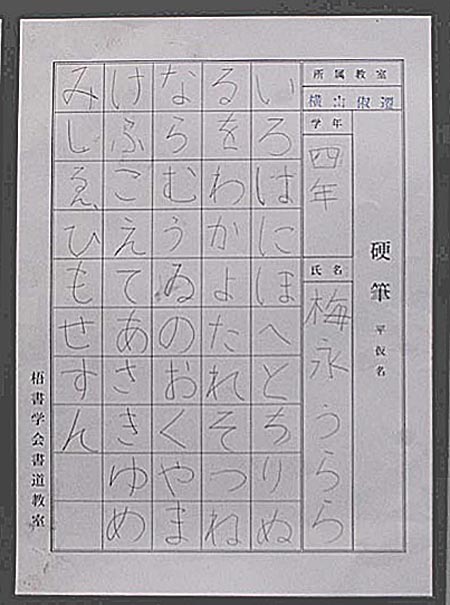 硬筆 平仮名
所属教室
横山
学年
四年
氏名
梅永うらら
いろはにほへとちりぬ
るをわかよたれそつね
ならむうゐのおくやま
けふこえてあさきゆめ
みしゑひもせすん
梧書学会書道教室